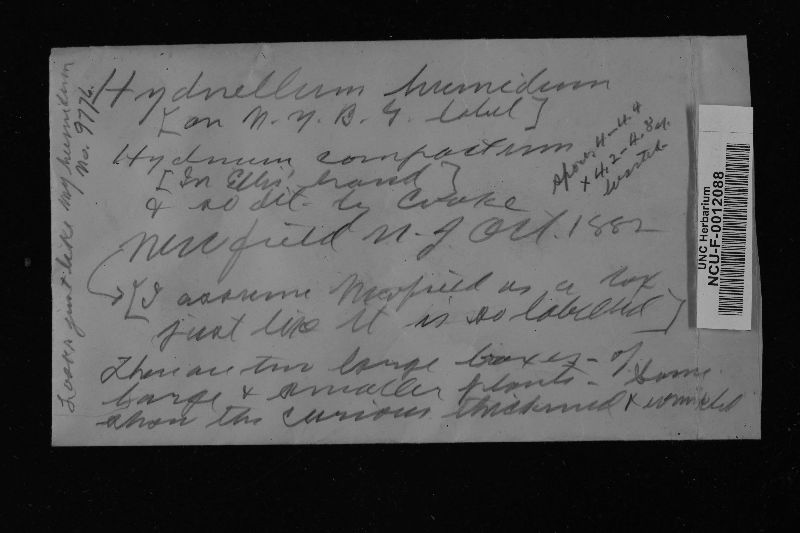 Hydnellum humidum
[on N. Y. B. G. label]
Hydnum compactum
[In Ellis' hand]
& so det. by Cooke
Newfield N. J. Oct. 1882
[I assume Newfield as a box
just like it is so labelled]
There are two large boxes - of
large & smaller plants - Some
show the curious thickened &
spores 4-4.4
x 4.2-4.8 µ.
warted
Looks just like my humidum
No. 9776.
UNC Herbarium
NCU-F-0012088